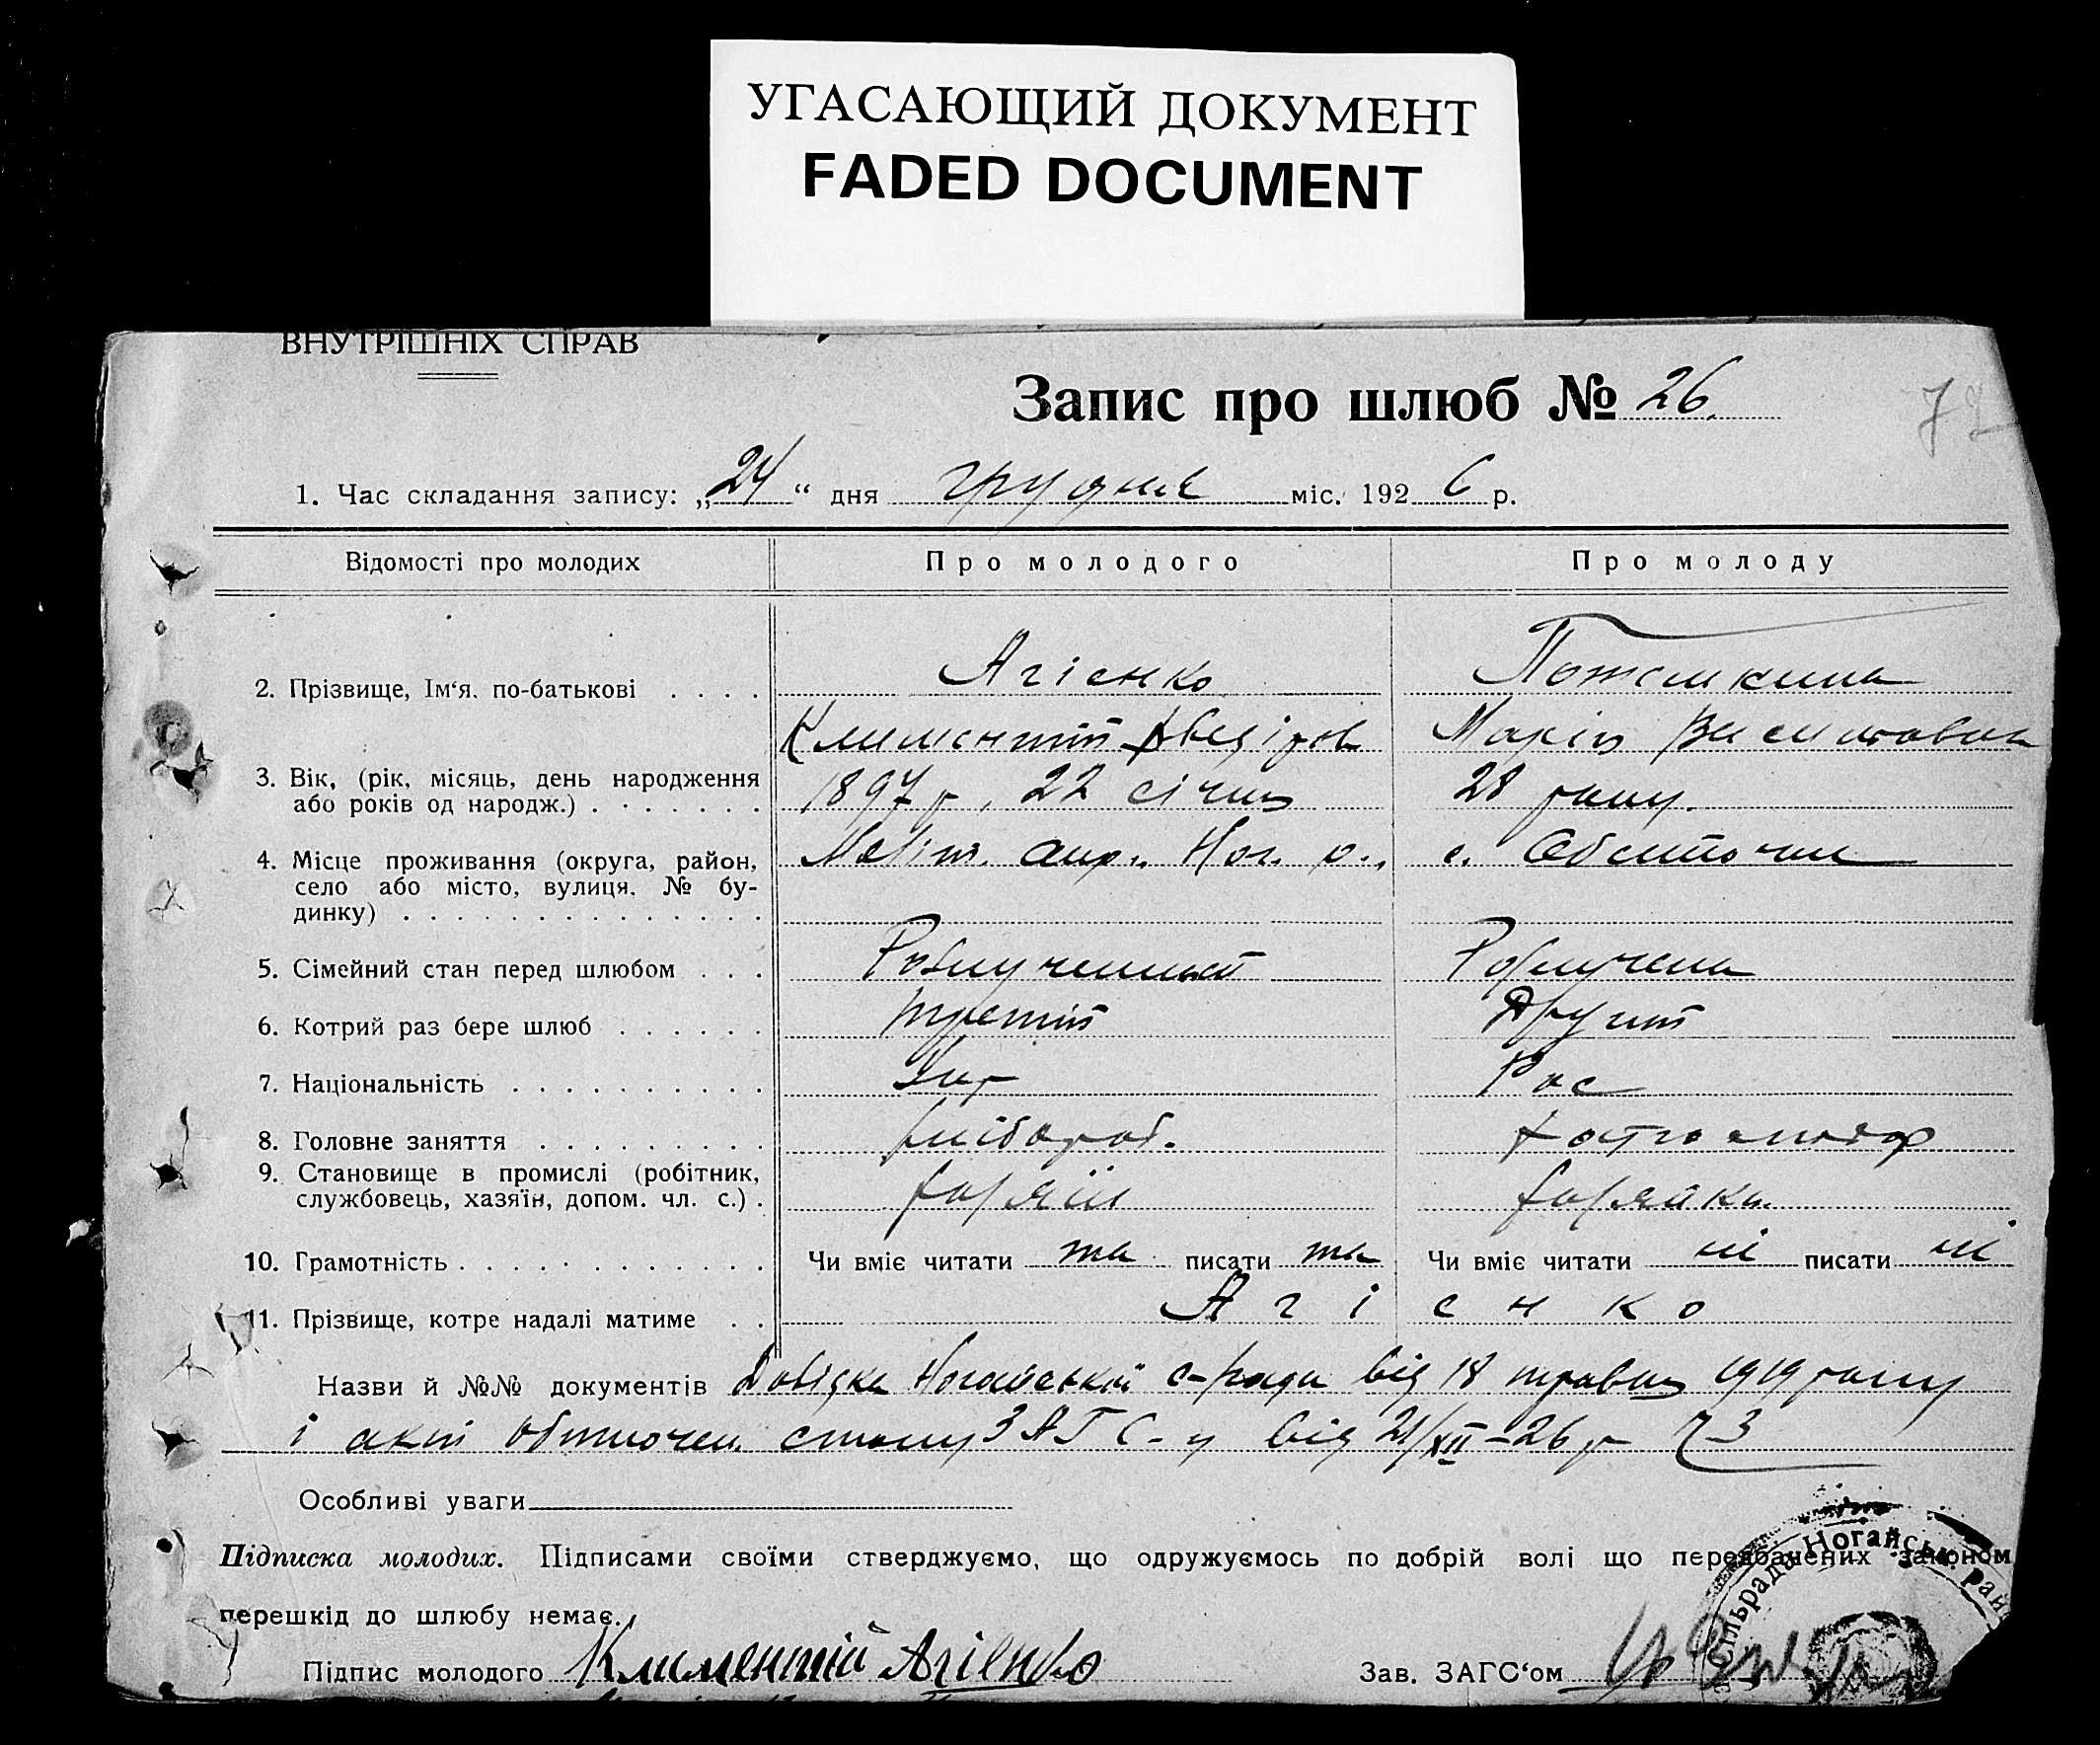 УГАСАЮЩИЙ ДОКУМЕНТ
FADED DOCUMENT
ВНУТРІШНІХ СПРАВ
Запис про шлюб № 26.
72
1. Час складання запису: „24“ дня грудня міс. 1926 р.
Відомості про молодих Про молодого Про молоду
2. Прізвище, Ім‘я. по-батькові Агієнко Потьомкина
Климентій Марія
3. Вік, (рік, місяць, день народження 1897 р, 22 січня 28 року.
або років од народж.)
4. Місце проживання (округа, район, Меліт. окр. Ног. р., с. Обіточне
село або місто, вулиця. № бу-
динку)
5. Сімейний стан перед шлюбом Розлученный Розлучена
6. Котрий раз бере шлюб третій Другий
7. Національність Укр Рос
8. Головне заняття хлібороб.
9. Становище в промислі (робітник, хазяїн хазяйка
службовець, хазяїн, допом. чл. с.)
10. Грамотність Чи вміє читати та писати та Чи вміє читати ні писати ні
11. Прізвище, котре надалі матиме Агієнко
Назви й №№ документів Довідка Ногайської с-ради від 18 травня 1919 року
і акт стану ЗАГС-у від 21/XII-26 р 3
Особливі уваги
Підписка молодих. Підписами своїми стверджуємо, що одружуємось по добрій волі що передбачених законом
перешкід до шлюбу немає.
Підпис молодого Климентій Агіенко Зав. ЗАГС‘ом
сільрада Ногайськ. рай